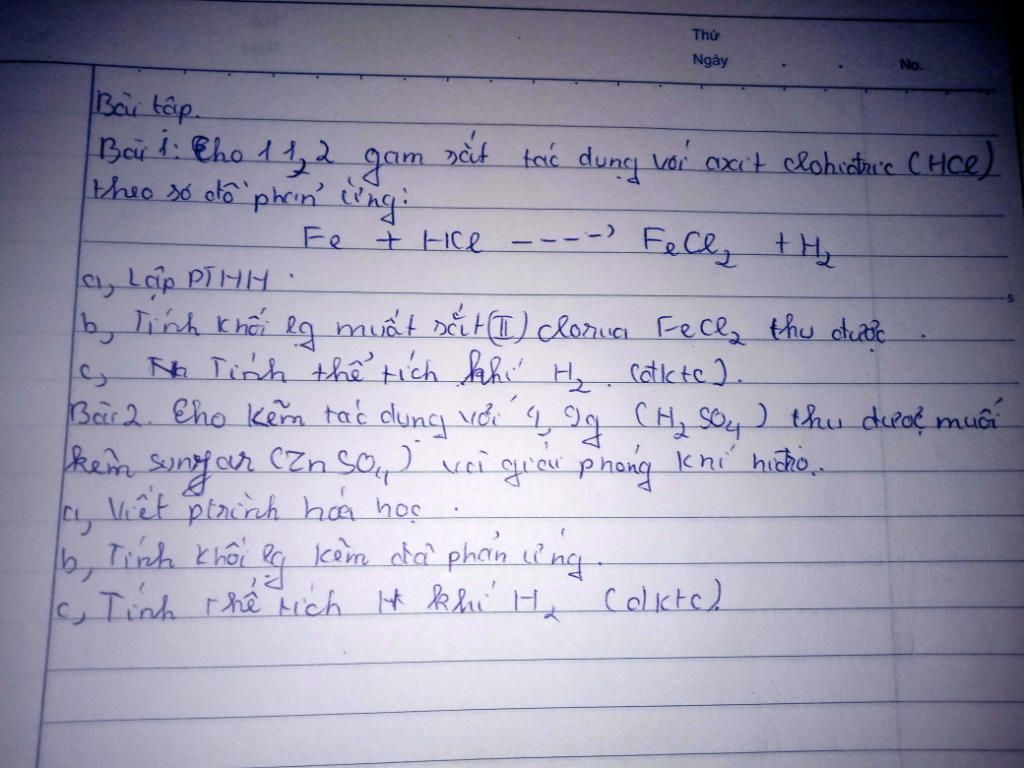 Thứ
Ngày . . No.
Bài tập.
Bài 1: Cho 11,2 gam sắt tác dụng với axit clohiđric (HCl)
theo sơ đồ phản ứng:
Fe + HCl ----> FeCl₂ + H₂
a, Lập PTHH .
b, Tính khối lg muốt sắt (II) clorua FeCl₂ thu được .
c, Tính thể tích khí H₂. (đktc).
Bài 2. Cho kẽm tác dụng với 4,9g (H₂SO₄) thu được muối
kẽm sunfat (ZnSO₄) và giải phóng khí hiđrô..
a, Viết ptrình hoá học .
b, Tính khối lg kẽm đã phản ứng.
c, Tính thể tích khí H₂ (đktc)